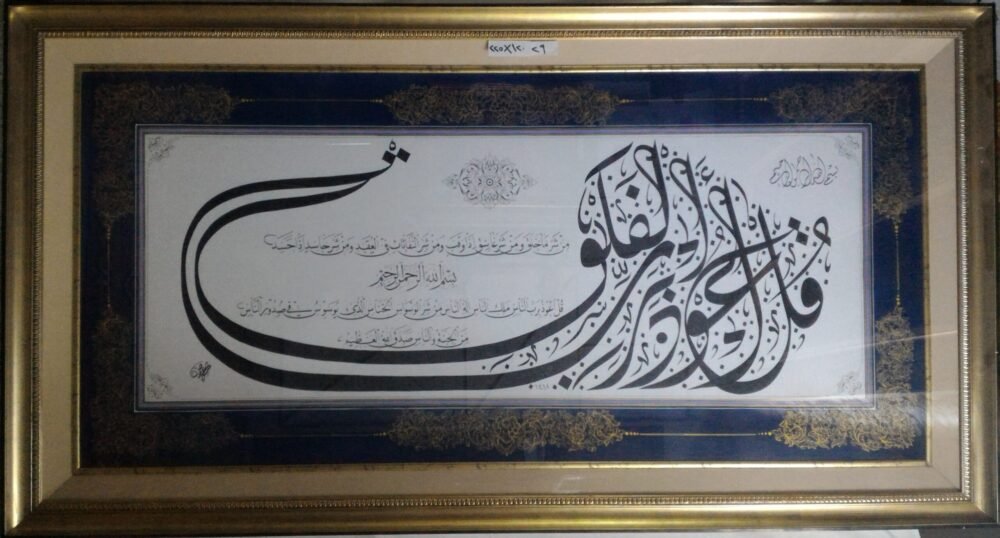 ٢٩ ٢٢٥X١٢٠
بسم الله الرحمن الرحيم
قل أعوذ برب الفلق
من شر ما خلق ومن شر غاسق إذا وقب ومن شر النفاثات في العقد ومن شر حاسد إذا حسد
بسم الله الرحمن الرحيم
قل أعوذ برب الناس ملك الناس إله الناس من شر الوسواس الخناس الذي يوسوس في صدور الناس
من الجنة والناس صدق الله العظيم